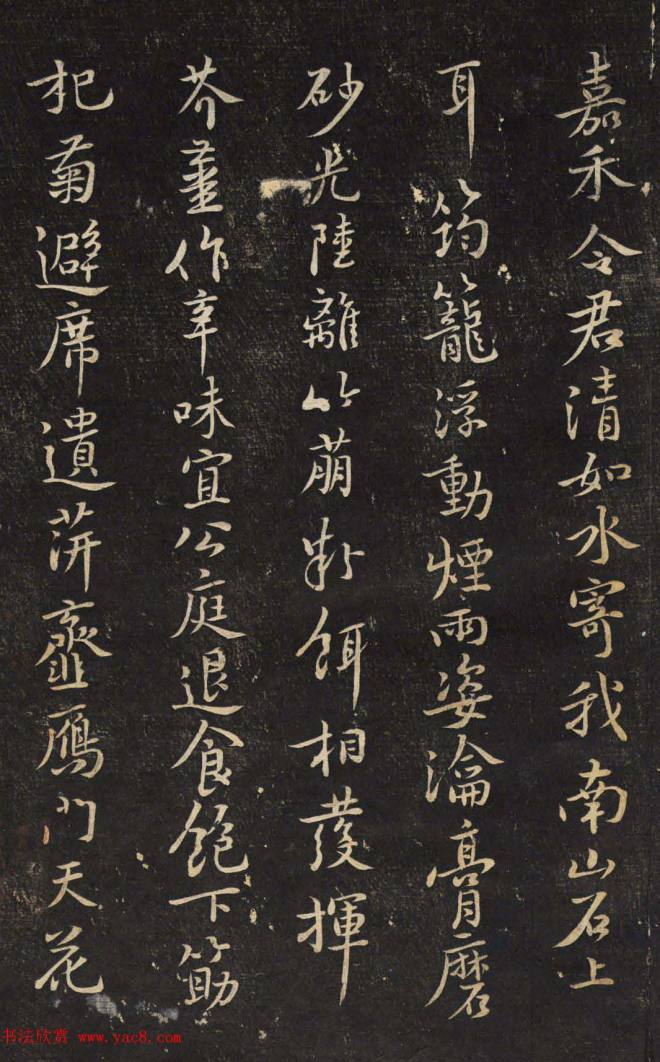 嘉禾令君清如水寄我南山石上
耳筠籠浮動煙雨姿瀹膏磨
砂光陸離竹萌粉餌相發揮
芥薑作辛味宜公庭退食飽下筯
杞菊避席遺蓱虀鴈門天花
书法欣赏 www.yac8.com